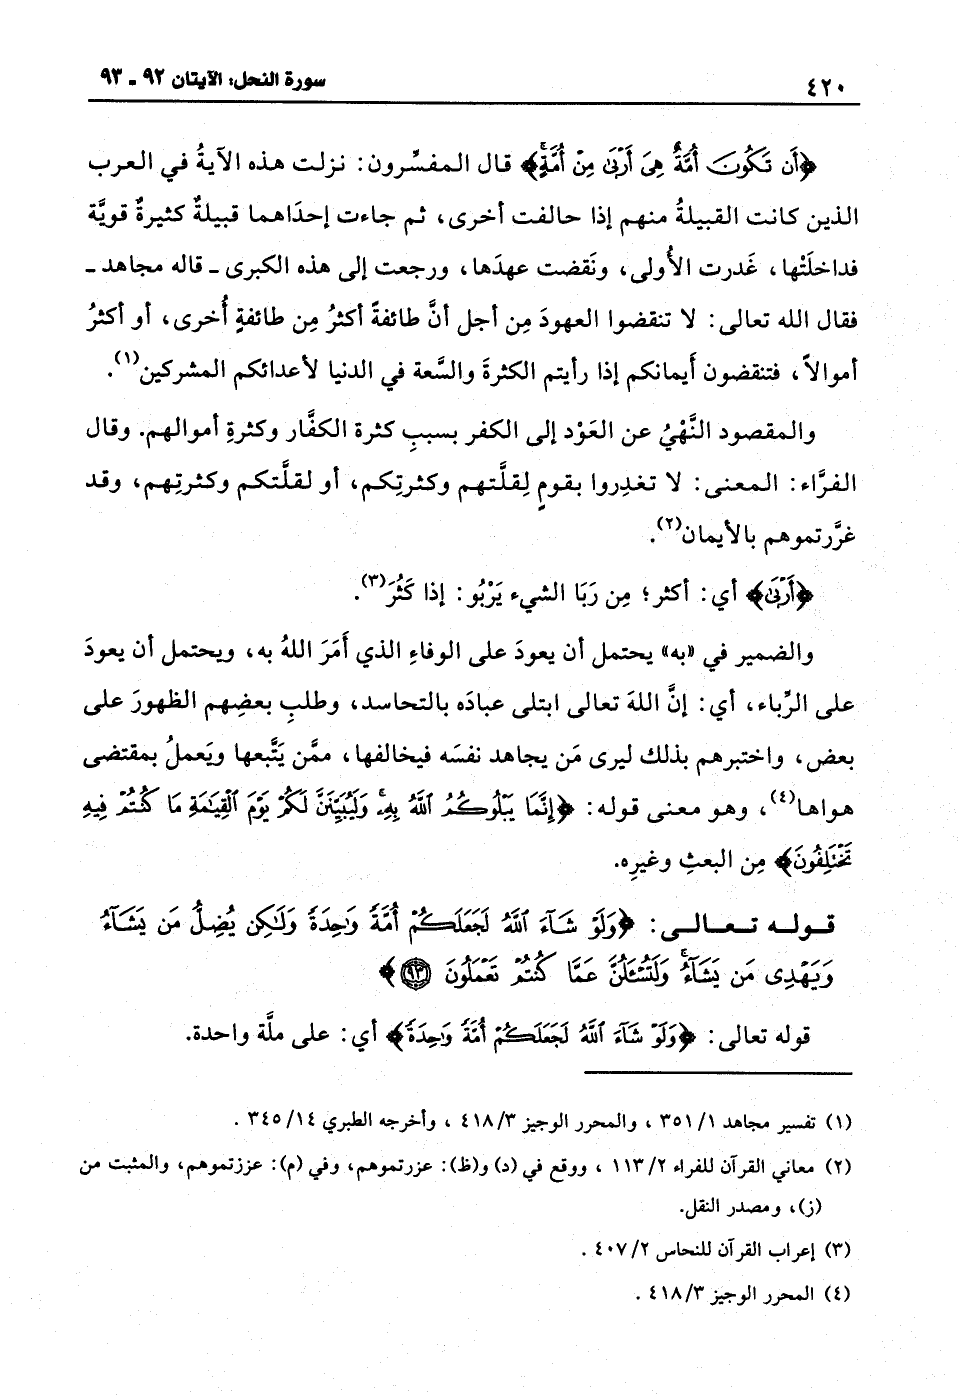 ٤٢٠
سورة النحل: الآيتان ٩٢ ـ ٩٣
﴿أَن تَكُونَ أُمَّةٌ هِىَ أَرْبَىٰ مِنْ أُمَّةٍ﴾ قال المفسِّرون: نزلت هذه الآيةُ في العرب
الذين كانت القبيلةُ منهم إذا حالفت أخرى، ثم جاءت إحدَاهما قبيلةٌ كثيرةٌ قويَّة
فداخلَتْها، غَدرت الأُولى، ونَقضت عهدَها، ورجعت إلى هذه الكبرى ـ قاله مجاهد ـ
فقال الله تعالى: لا تنقضوا العهودَ مِن أجل أنَّ طائفةً أكثرُ مِن طائفةٍ أُخرى، أو أكثرُ
أموالاً، فتنقضون أَيمانكم إذا رأيتم الكثرةَ والسَّعة في الدنيا لأعدائكم المشركين(١).
والمقصود النَّهْيُ عن العَوْد إلى الكفر بسببِ كثرة الكفَّار وكثرةِ أموالهم. وقال
الفرَّاء: المعنى: لا تغدِروا بقومٍ لِقلَّتهم وكثرتِكم، أو لقلَّتكم وكثرتِهم، وقد
غرَّرتموهم بالأيمان(٢).
﴿أَرْبَىٰ﴾ أي: أكثر؛ مِن رَبَا الشيء يَرْبُو: إذا كَثُرَ(٣).
والضمير في «به» يحتمل أن يعودَ على الوفاءِ الذي أمَرَ اللهُ به، ويحتمل أن يعودَ
على الرِّباء، أي: إنَّ اللهَ تعالى ابتلى عبادَه بالتحاسد، وطلبِ بعضِهم الظهورَ على
بعض، واختبرهم بذلك ليرى مَن يجاهد نفسَه فيخالفها، ممَّن يَتَّبعها ويَعملُ بمقتضى
هواها(٤)، وهو معنى قوله: ﴿إِنَّمَا يَبْلُوكُمُ ٱللَّهُ بِهِۦۚ وَلَيُبَيِّنَنَّ لَكُمْ يَوْمَ ٱلْقِيَٰمَةِ مَا كُنتُمْ فِيهِ
تَخْتَلِفُونَ﴾ مِن البعثِ وغيرِه.
قوله تعالى: ﴿وَلَوْ شَآءَ ٱللَّهُ لَجَعَلَكُمْ أُمَّةً وَٰحِدَةً وَلَٰكِن يُضِلُّ مَن يَشَآءُ
وَيَهْدِى مَن يَشَآءُۚ وَلَتُسْـَٔلُنَّ عَمَّا كُنتُمْ تَعْمَلُونَ ٩٣﴾
قوله تعالى: ﴿وَلَوْ شَآءَ ٱللَّهُ لَجَعَلَكُمْ أُمَّةً وَٰحِدَةً﴾ أي: على ملَّة واحدة.
(١) تفسير مجاهد ١/ ٣٥١، والمحرر الوجيز ٣/ ٤١٨، وأخرجه الطبري ١٤/ ٣٤٥.
(٢) معاني القرآن للفراء ٢/ ١١٣، ووقع في (د) و(ظ): عزرتموهم، وفي (م): عززتموهم، والمثبت من
(ز)، ومصدر النقل.
(٣) إعراب القرآن للنحاس ٢/ ٤٠٧.
(٤) المحرر الوجيز ٣/ ٤١٨.